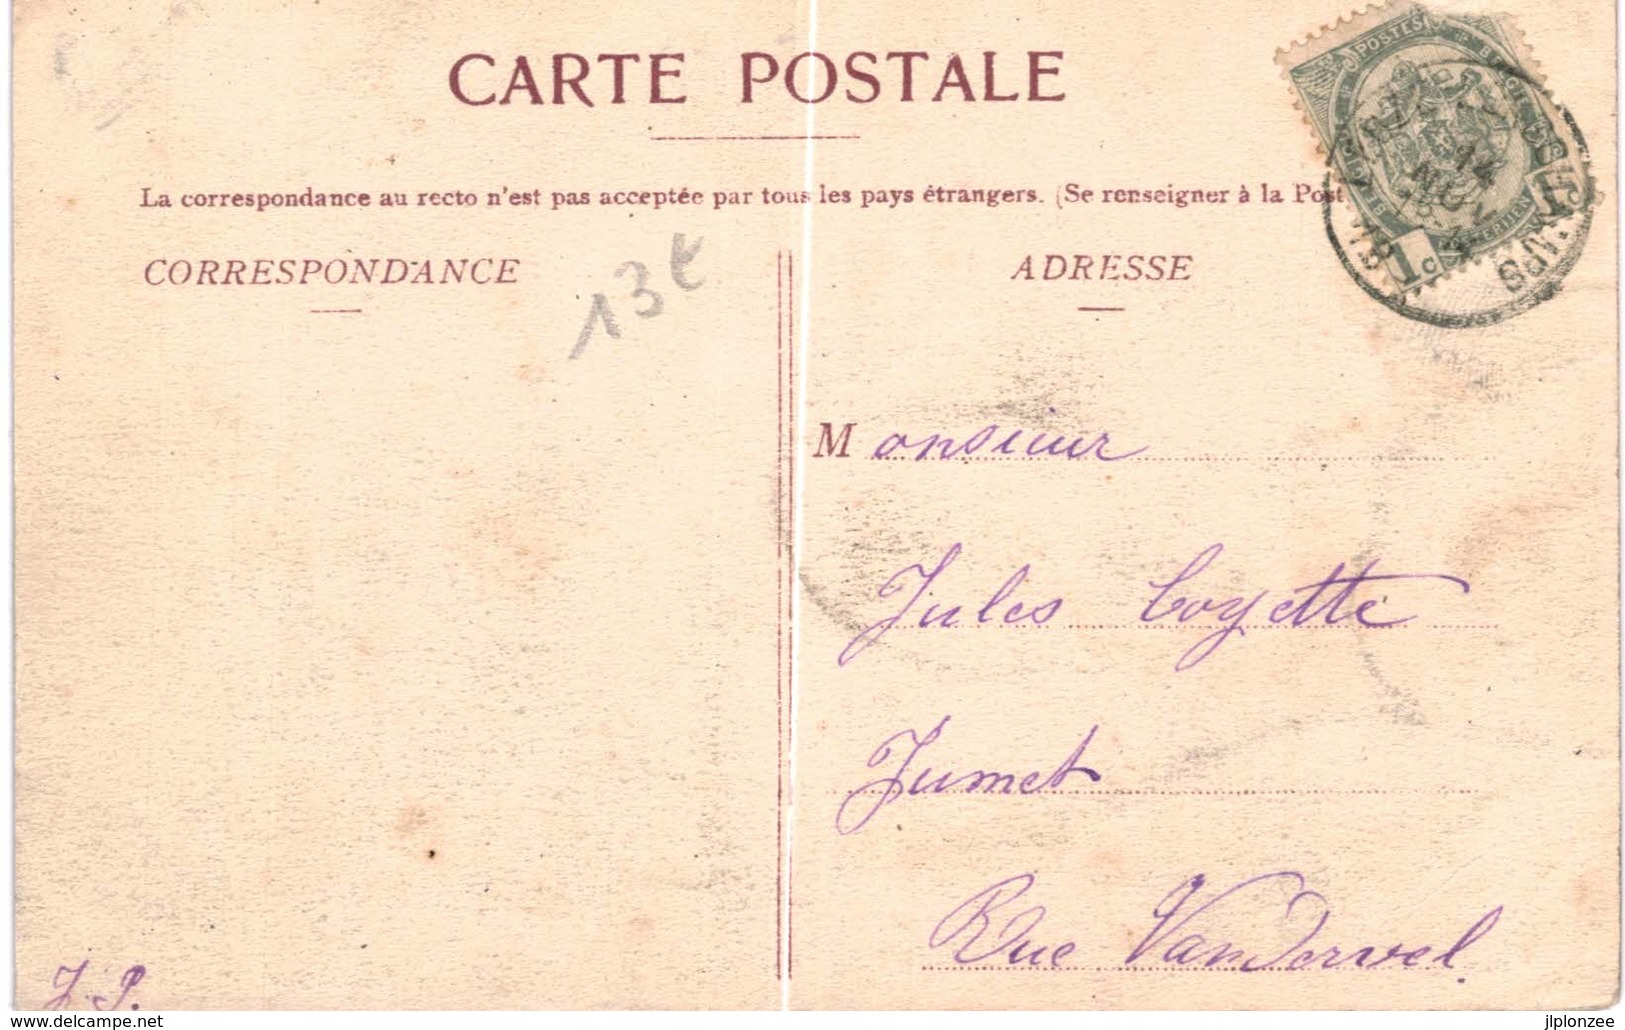 CARTE POSTALE
La correspondance au recto n'est pas acceptée par tous les pays étrangers. (Se renseigner à la Post
CORRESPONDANCE
ADRESSE
13 €
POSTES
1c
14
NOV
Monsieur
Jules Coyette
Jumet
Rue Vandervel
J. P.
www.delcampe.net
jlplonzee